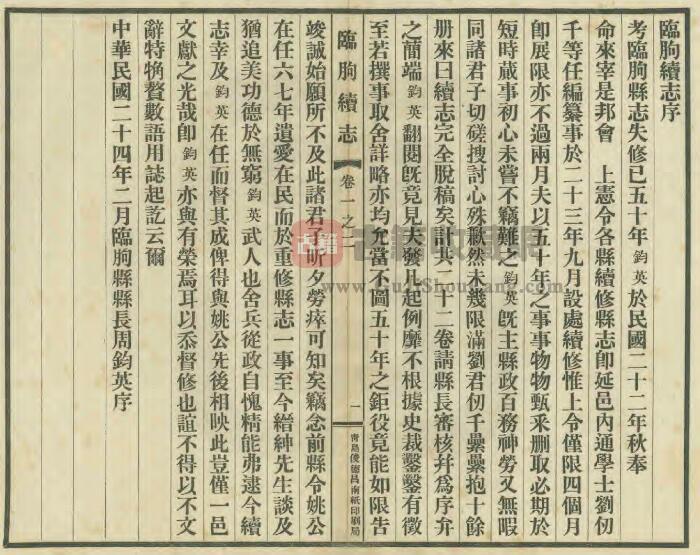 臨朐續志序
考臨朐縣志失修已五十年鈞英於民國二十二年秋奉
命來宰是邦會 上憲令各縣續修縣志卽延邑內通學士劉仞
千等任編纂事於二十三年九月設處續修惟上令僅限四個月
卽展限亦不過兩月夫以五十年之事事物物甄釆删取必期於
短時蕆事初心未嘗不竊難之鈞英旣主縣政百務神勞又無暇
同諸君子切磋搜討心殊歉然未幾限滿劉君仞千纍纍抱十餘
册來曰續志完全脫稿矣計共二十二卷請縣長審核幷爲序弁
之簡端鈞英翻閱旣竟見夫發凡起例靡不根據史裁鑿鑿有徵
至若撰事取舍詳略亦均允當不圖五十年之鉅役竟能如限告
臨朐續志
卷一之一
一
青島俊德昌南紙印刷局
竣誠始願所不及此諸君子昕夕勞瘁可知矣竊念前縣令姚公
在任六七年遺愛在民而於重修縣志一事至今縉紳先生談及
猶追美功德於無窮鈞英武人也舍兵從政自愧精能弗逮今續
志幸及鈞英在任而督其成俾得與姚公先後相映此豈僅一邑
文獻之光哉卽鈞英亦與有榮焉耳以忝督修也誼不得以不文
辭特觕贅數語用誌起訖云爾
中華民國二十四年二月臨朐縣縣長周鈞英序
古籍
古籍收藏网
www.GujiShouCang.com